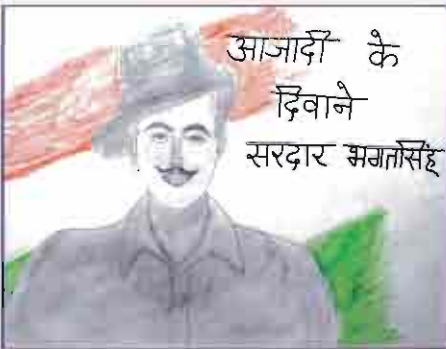 आजादी के
दिवाने
सरदार भगतसिंह